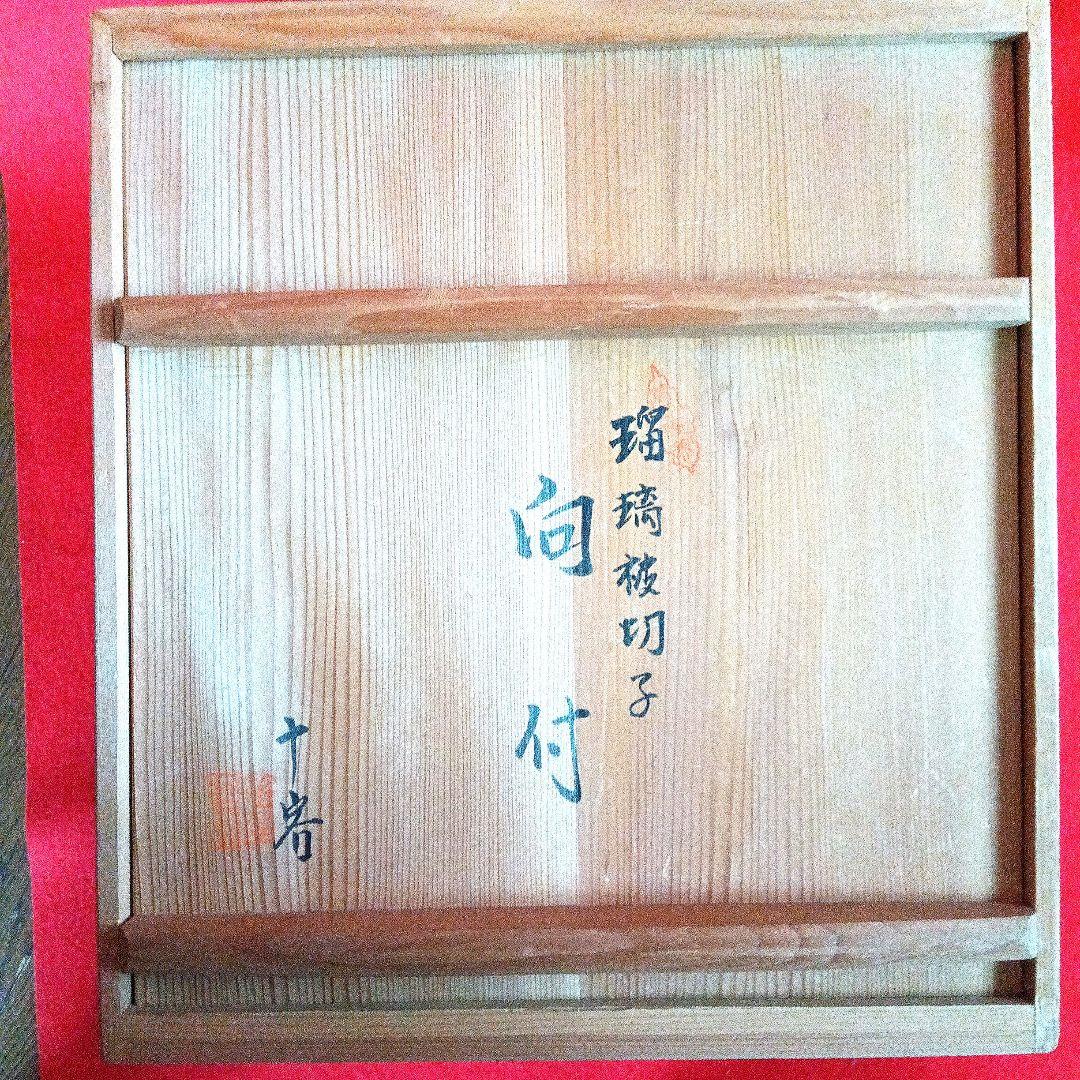 瑠璃被切子
向付
十客